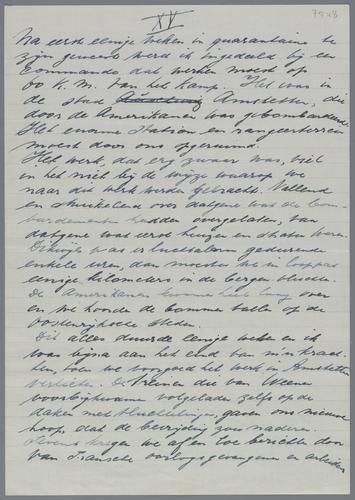 XV
7548
Na eerst eenige weken in quarantaine te
zijn geweest werd ik ingedeeld bij een
Commando dat werken moest op
60 K.M. van het kamp. Het was in
de stad Amstetten, die
door de Amerikanen was gebombardeerd
Het enorme station en rangeerterrein
moest door ons opgeruimd.
Het werk, dat erg zwaar was, viel
in het niet bij de wijze waarop we
naar dit werk werden gebracht. Vallend
en struikelend over datgene wat de bom-
bardementen hadden overgelaten, van
datgene wat eerst huizen en straten waren.
Dikwijls was er luchtalarm gedurende
enkele uren, dan moesten we in looppas
eenige kilometers in de bergen vluchten.
De Amerikanen kwamen heel laag over
en we hoorde de bommen vallen op de
Oostenrijksche steden.
Dit alles duurde eenige weken en ik
was bijna aan het eind van mijn krach-
ten, toen we voorgoed het werk in Amstetten
verlieten. De treinen die van Weenen
voorbijkwamen volgeladen zelfs op de
daken met vluchtelingen, gaven ons nieuwe
hoop dat de bevrijding zou naderen.
Tevens kregen we af en toe berichten door
van Fransche oorlogsgevangenen en arbeiders